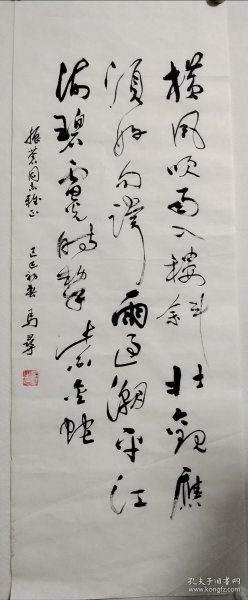 横风吹雨入楼斜壮观應
須好句誇雨过潮平江
海碧電光时掣紫金蛇
振同志雅正
己巳初馬
孔夫子旧书网
www.kongfz.com